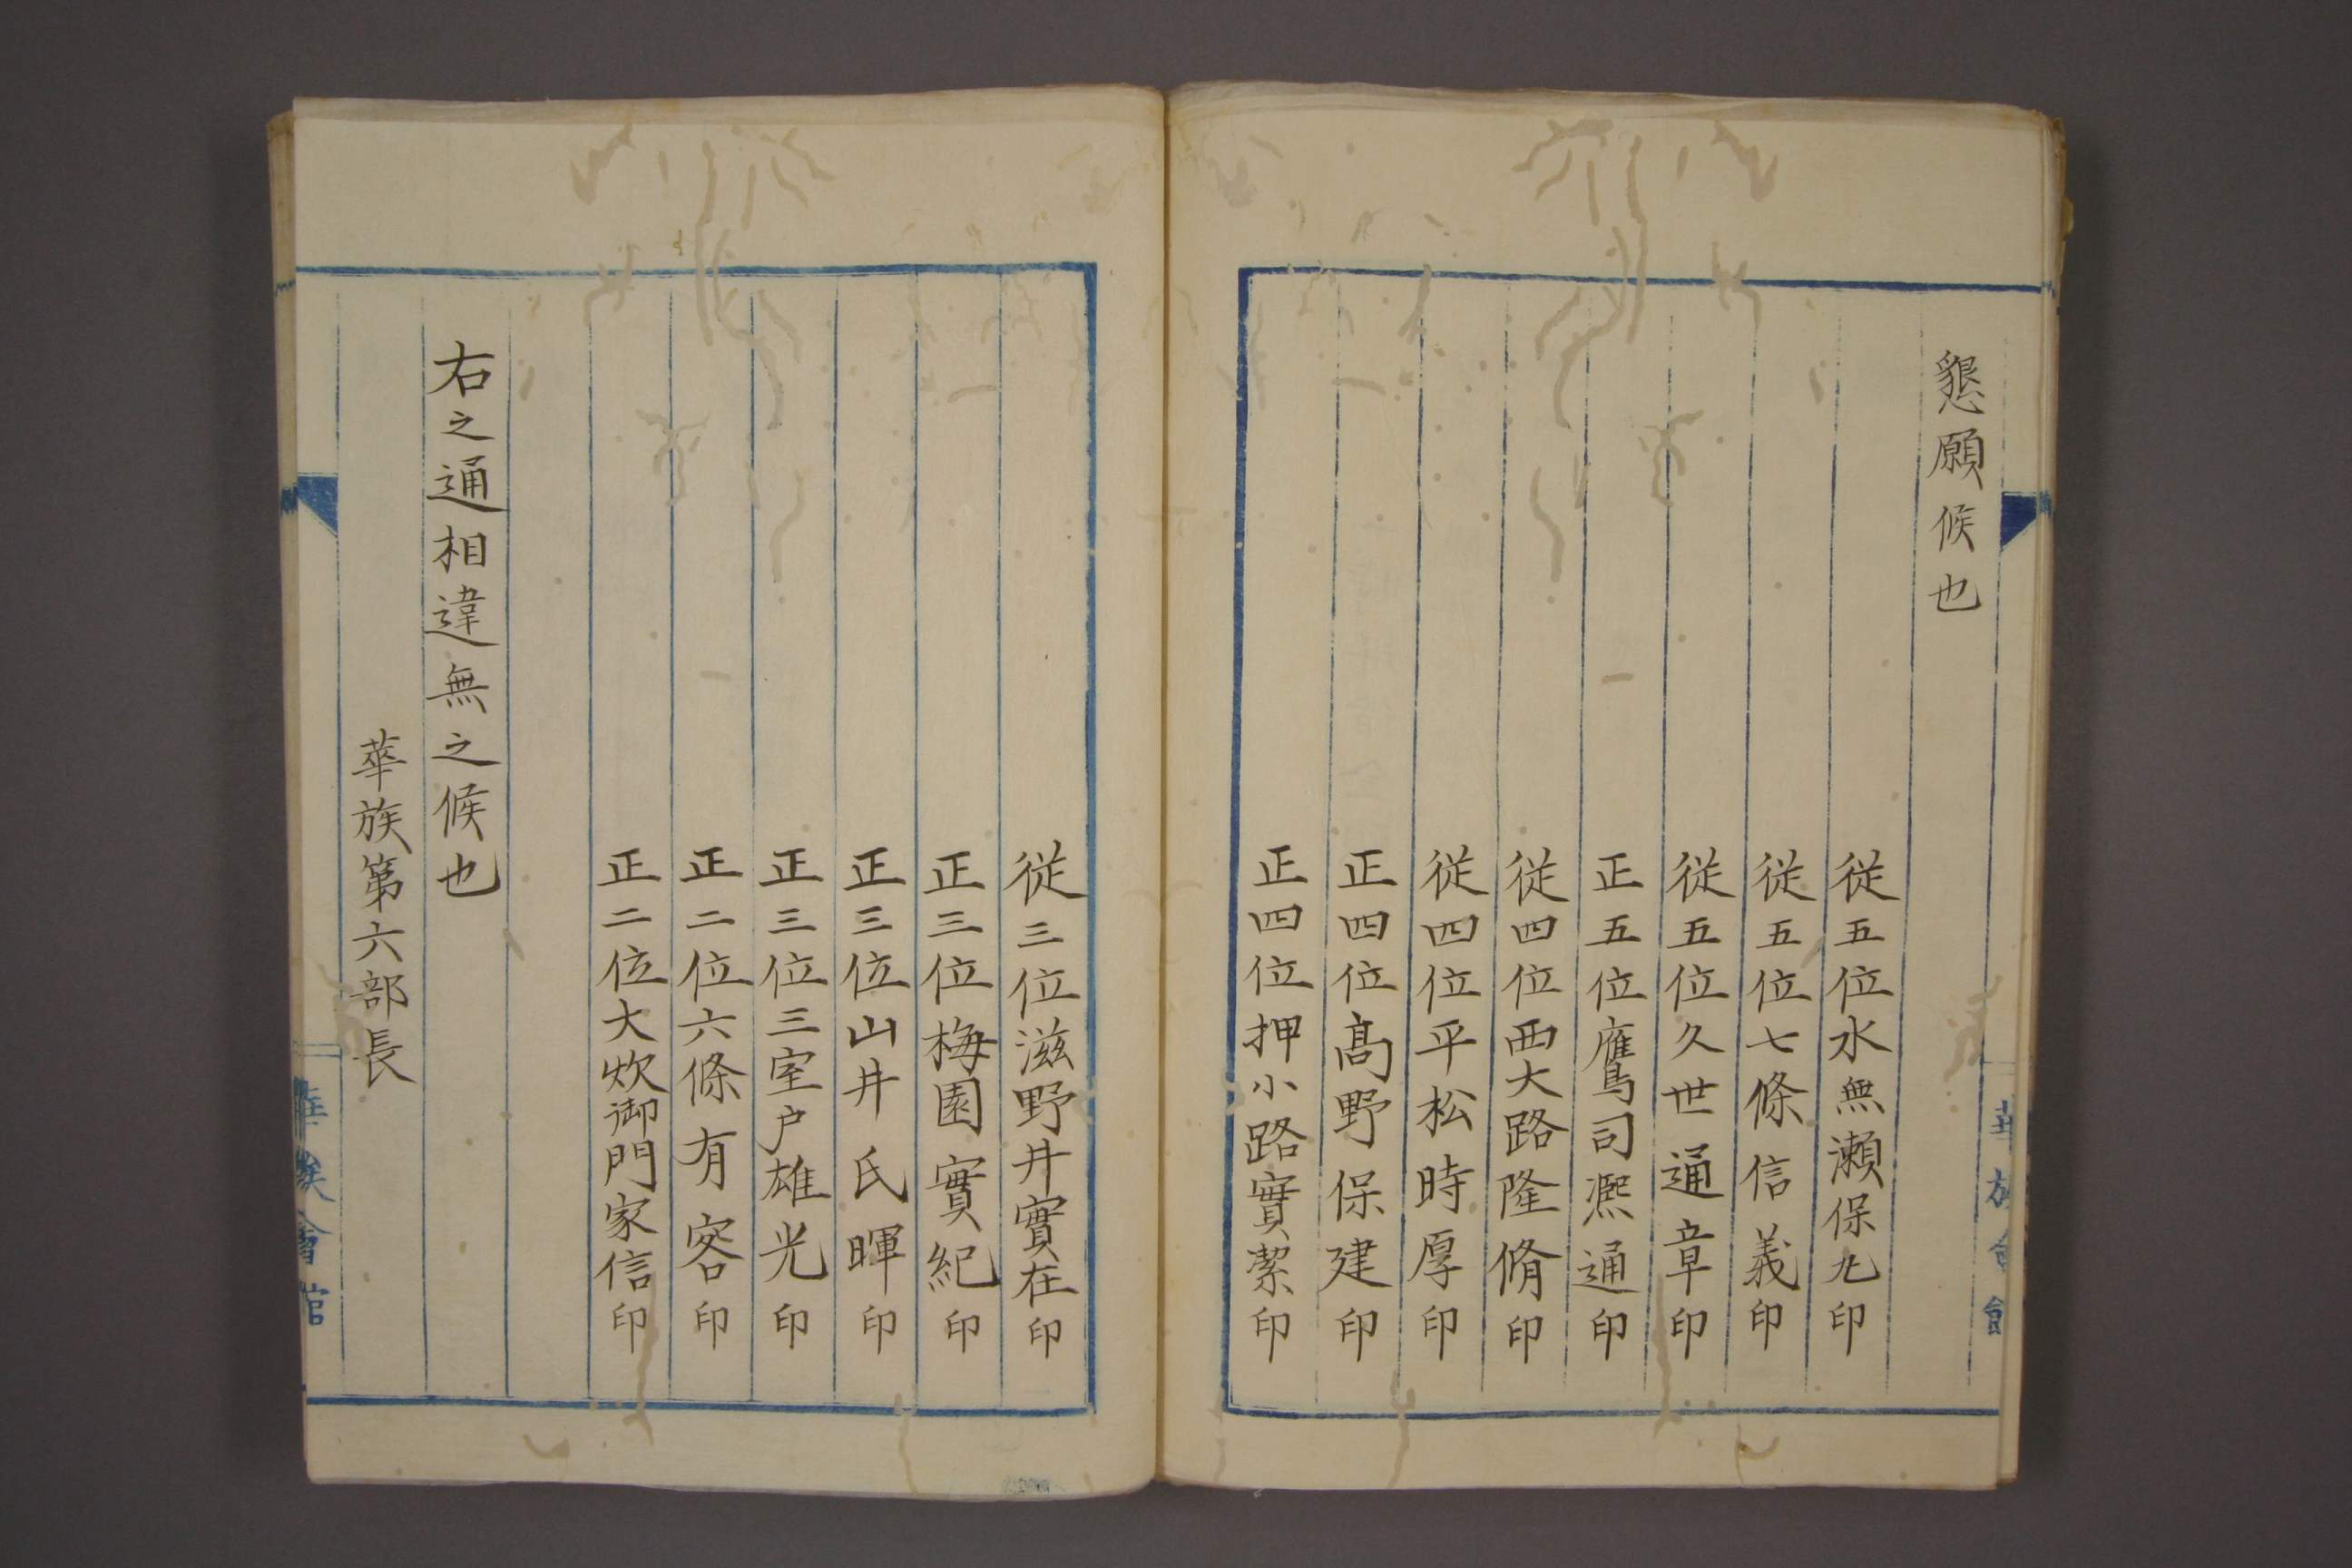 懇願候也
従五位水無瀬保丸印
従五位七條信義印
従五位久世通章印
正五位鷹司凞通印
従四位西大路隆脩印
従四位平松時厚印
正四位髙野保建印
正四位押小路實潔印
従三位滋野井實在印
正三位梅園實紀印
正三位山井氏暉印
正三位三室戸雄光印
正二位六條有容印
正二位大炊御門家信印
右之通相違無之候也
華族第六部長
華族會館
華族會館